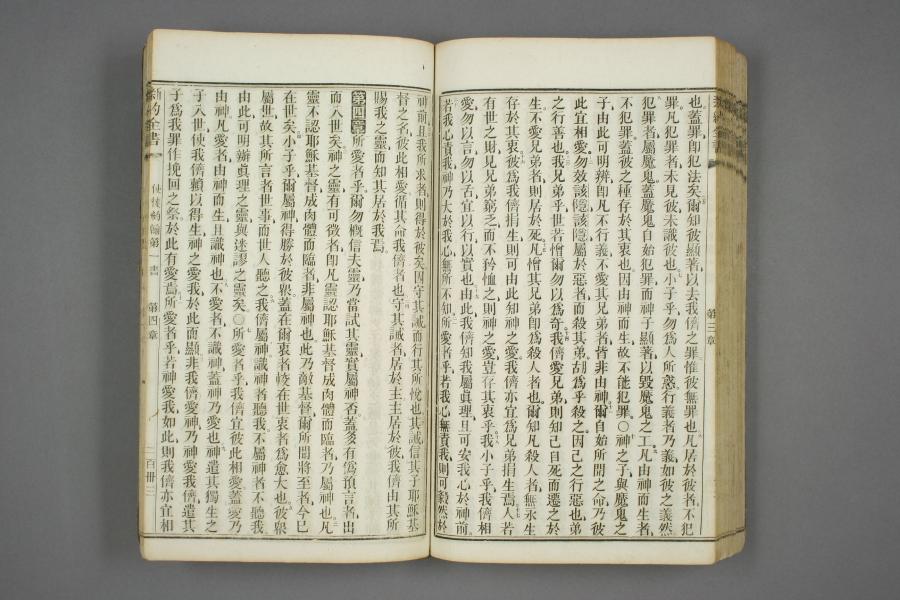 第三章
也蓋罪卽犯法矣爾知彼顯著以去我儕之罪惟彼無罪也凡居於彼者不犯
罪凡犯罪者未見彼未識彼也小子乎勿爲人所惑行義者乃義如彼之義然
犯罪者屬魔鬼蓋魔鬼自始犯罪而神子顯著以毀魔鬼之工凡由神而生者
不犯罪蓋彼之種存於其衷也因由神而生故不能犯罪○神之子與魔鬼之
子由此可明辨卽凡不行義不愛其兄弟者皆非由神爾自始所聞之命乃彼
此宜相愛勿效該隱該隱屬於惡者而殺其弟胡爲乎殺之因己之行惡也弟
之行善也我兄弟乎世若憎爾勿以爲奇我儕愛兄弟則知己自死而遷之於
生不愛兄弟者則居於死凡憎其兄弟卽爲殺人者也爾知凡殺人者無永生
存於其衷彼爲我儕捐生則可由此知神之愛我儕亦宜爲兄弟捐生焉人若
有世之財見兄弟窮乏而不矜恤之則神之愛豈存其衷乎我小子乎我儕相
愛勿以言勿以舌宜以行以實也由此我儕知我屬眞理且可安我心於神前
若我心責我神乃大於我心無所不知所愛者乎若我心無責我則可毅然於
神前且我所求者則得於彼矣因守其誡而行其所悅也其誡信其子耶穌基
督之名彼此相愛循其命我儕者也守其誡者居於主主居於彼我儕由其所
賜我之靈而知其居於我焉
第四章所愛者乎爾勿槪信夫靈乃當試其靈實屬神否蓋多有僞預言者出
而入世矣神之靈有可徵者卽凡靈認耶穌基督成肉體而臨者乃屬神也凡
靈不認耶穌基督成肉體而臨者非屬神也此乃敵基督爾所聞將至者今已
在世矣小子乎爾屬神得勝於彼眾蓋在爾衷者較在世衷者爲愈大也彼眾
屬世故其所言者世事而世人聽之我儕屬神識神者聽我不屬神者不聽我
由此可明辨眞理之靈與迷謬之靈矣○所愛者乎我儕宜彼此相愛蓋愛乃
由神凡愛者由神而生且識神也不愛者不識神蓋神乃愛也神遣其獨生之
子入世使我儕賴以得生神之愛我於此而顯非我儕愛神乃神愛我儕遣其
子爲我罪作挽回之祭於此有愛焉所愛者乎若神愛我如此則我儕亦宜相
新約全書
第一書
第四章
百卌三